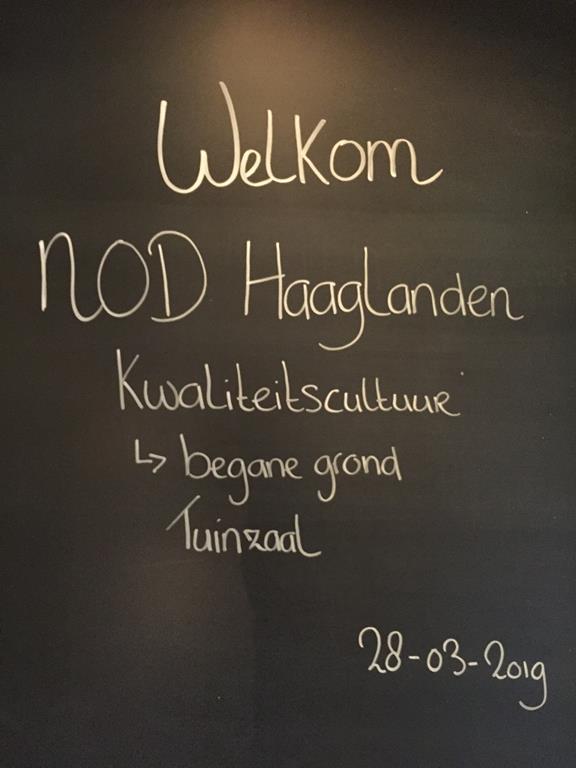 Welkom
NOD Haaglanden
Kwaliteitscultuur
↳ begane grond
Tuinzaal
28-03-2019